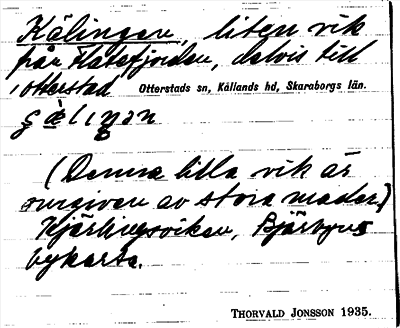 Kälingen, liten vik
från Slätefjorden, delvis till
Otterstad Otterstads sn, Kållands hd, Skaraborgs län.
(Denna lilla vik är
omgiven av stora mader)
Kjärlingsviken, Bjärbyns
bykarta.
THORVALD JONSSON 1935.